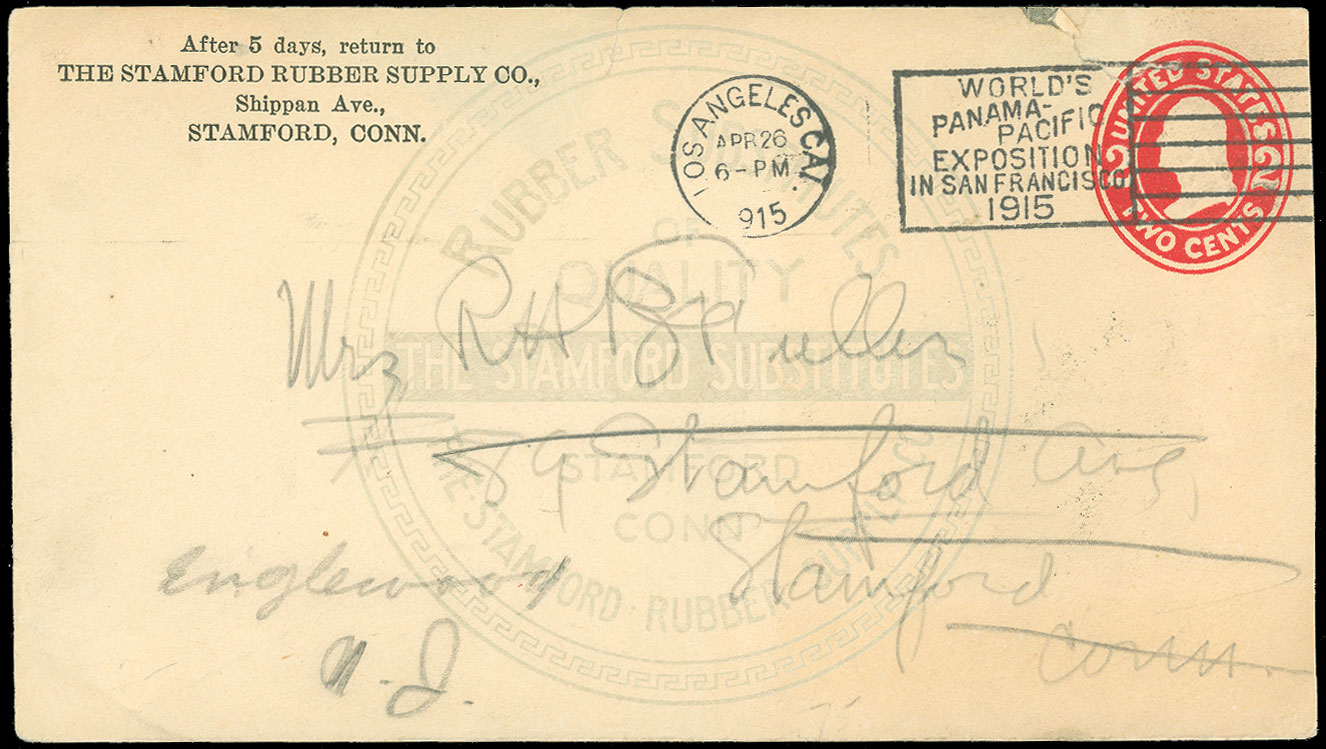 After 5 days, return to
THE STAMFORD RUBBER SUPPLY CO.,
Shippan Ave.,
STAMFORD, CONN.
LOS ANGELES CAL.
APR 26
6-PM
1915
WORLD'S
PANAMA-
PACIFIC
EXPOSITION
IN SAN FRANCISCO
1915
UNITED STATES
2 2
TWO CENTS
RUBBER SUBSTITUTES
OF
QUALITY
THE STAMFORD SUBSTITUTES
STAMFORD
CONN
THE STAMFORD · RUBBER SUPPLY CO.
Mrs R H
Stamford Ave,
Stamford
Conn.
Englewood
N.J.